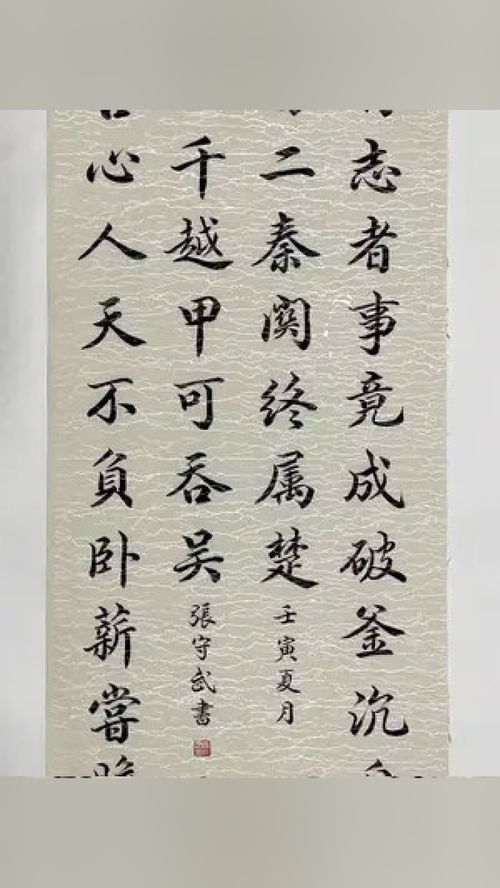 志者事竟成破釜沉
二秦関终属楚
壬寅夏月
心人天不負卧薪嘗
千越甲可吞吴
張守武書